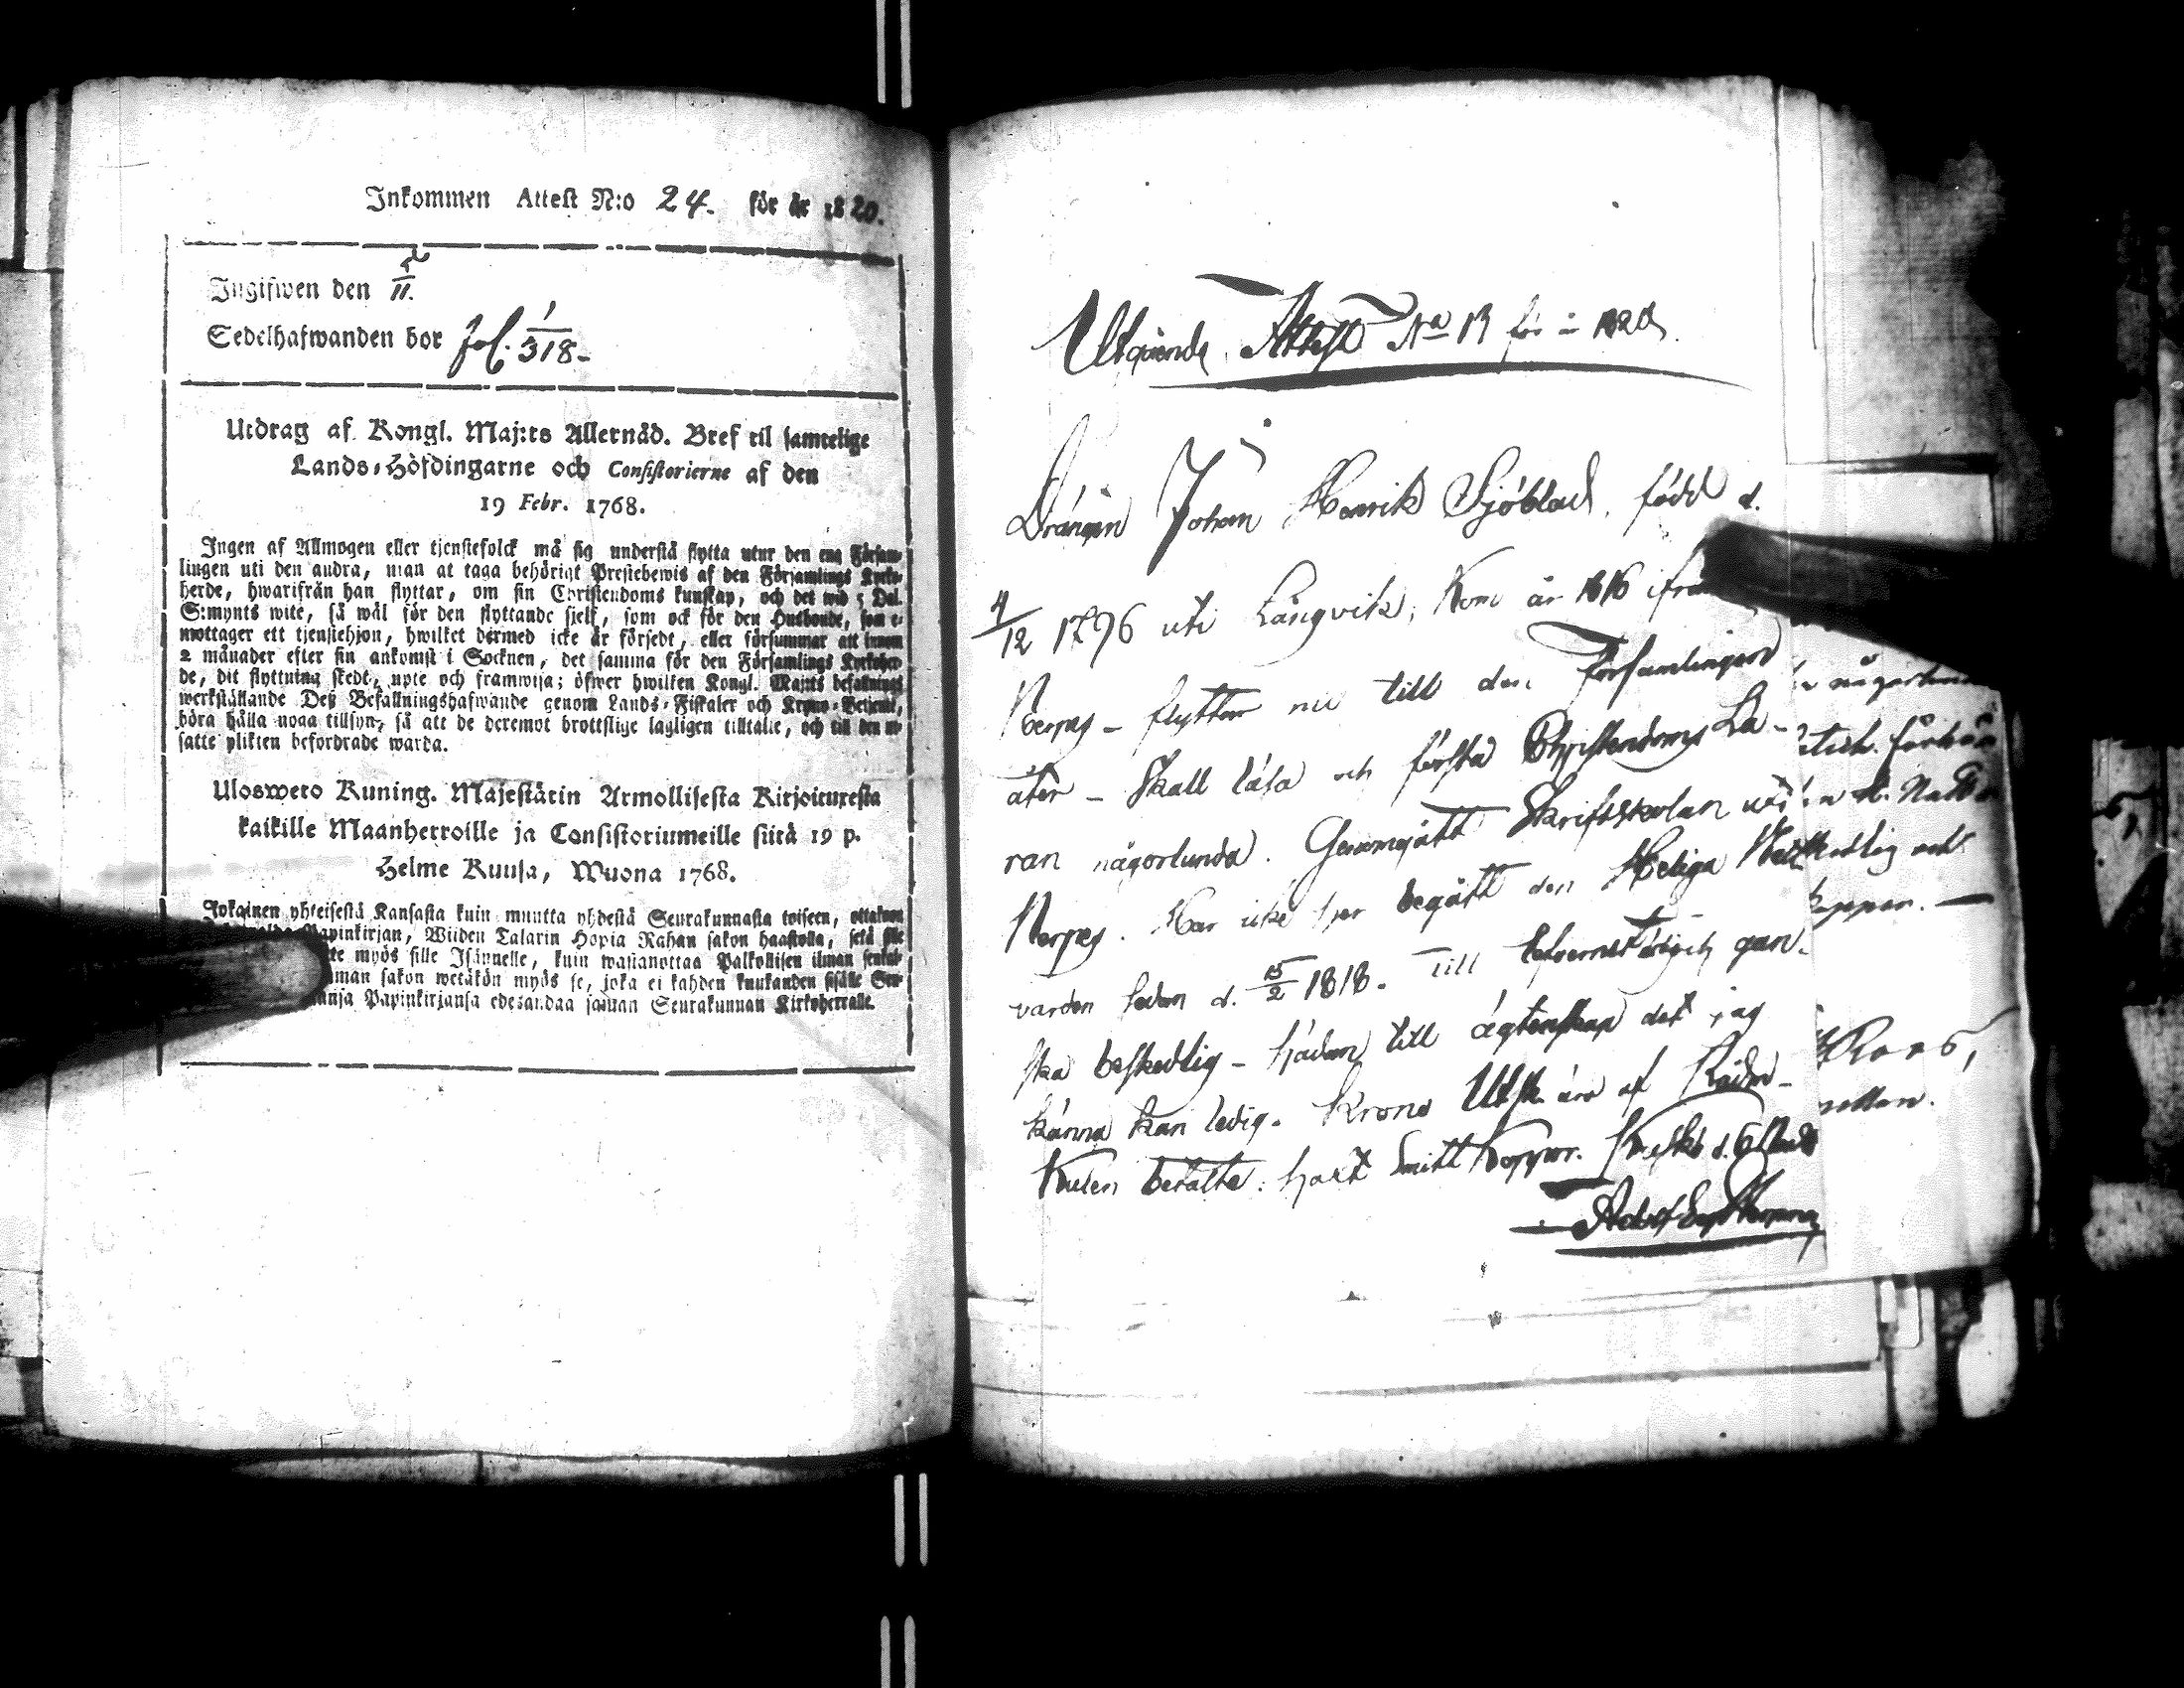 Inkommen Attest N:o 24. för år 1820.
Ingifwen den 5/11.
Sedelhafwanden bor fol. 1/318.
Utdrag af Kongl. Maj:ts Allernåd. Bref til samtelige
Lands-Höfdingarne och Consistorierne af den
19 Febr. 1768.
Ingen af Allmogen eller tjenstefolck må sig understå flytta utur den ena Försam-
lingen uti den andra, utan at taga behörigt Prestebewis af den Församlings Kyrko-
herde, hwarifrån han flyttar, om sin Christendoms kunskap, och det wid 5 Dal.
S:mynts wite, så wäl för den flyttande sielf, som ock för den Husbonde, som e-
mottager ett tjenstehjon, hwilket dermed icke är försedt, eller försummar att innom
2 månader efter sin ankomst i Socknen, det samma för den Församlings Kyrkoher-
de, dit flyttning skedt, upte och framwisa; öfwer hwilken Kongl. Maj:ts befallnings
werkställande Deß Befallningshafwande genom Lands-Fiskaler och Krono-Betjente,
böra hålla noga tillsyn, så att de deremot brottslige lagligen tilltalte, och till den ut-
satte plikten befordrade warda.
Ulosweto Kuning. Majestätin Armollisesta Kirjoituxesta
kaikille Maanherroille ja Consistoriumeille siitä 19 p.
Helme Kuusa, Wuona 1768.
Jokainen yhteisestä Kansasta kuin muutta yhdestä Seurakunnasta toiseen, ottakoon
Papinkirjan, Wiiden Talarin Hopia Rahan sakon haastolla, sekä sille
myös sille Isännelle, kuin wastanottaa Palkollisen ilman senkal-
sakon wetäkön myös se, joka ei kahden kuukanden sisälle Seu-
Papinkirjansa edesandaa saman Seurakunnan Kirkoherralle.
Utgående Attest No 13 för år 1820.
Drängen Johan Henrik Sjöblad, född d.
4/12 1796 uti Långvik, Kom år 1816 ifrån
Nerpes – flyttar nu till den Församlingen
åter – Skall läsa och förstå Christendoms Lä-
ran någorlunda. Genomgått Skriftskolan uti
Nerpes. Har icke här begått den Heliga Natt-
varden sedan d. 15/2 1818. Till lefvernet gan-
ska beskedlig – hädan till ägtenskap det jag
känna kan ledig. Krono Utsk. äro af
betalte: haft Smitt Koppor.
någorlunda
förhör
n H. Natt
kedlig och
koppor. —